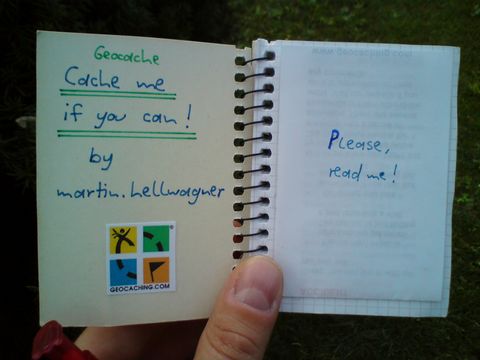 Geocache
Cache me
if you can!
by
martin.hellwagner
GEOCACHING.COM
Please,
read me!